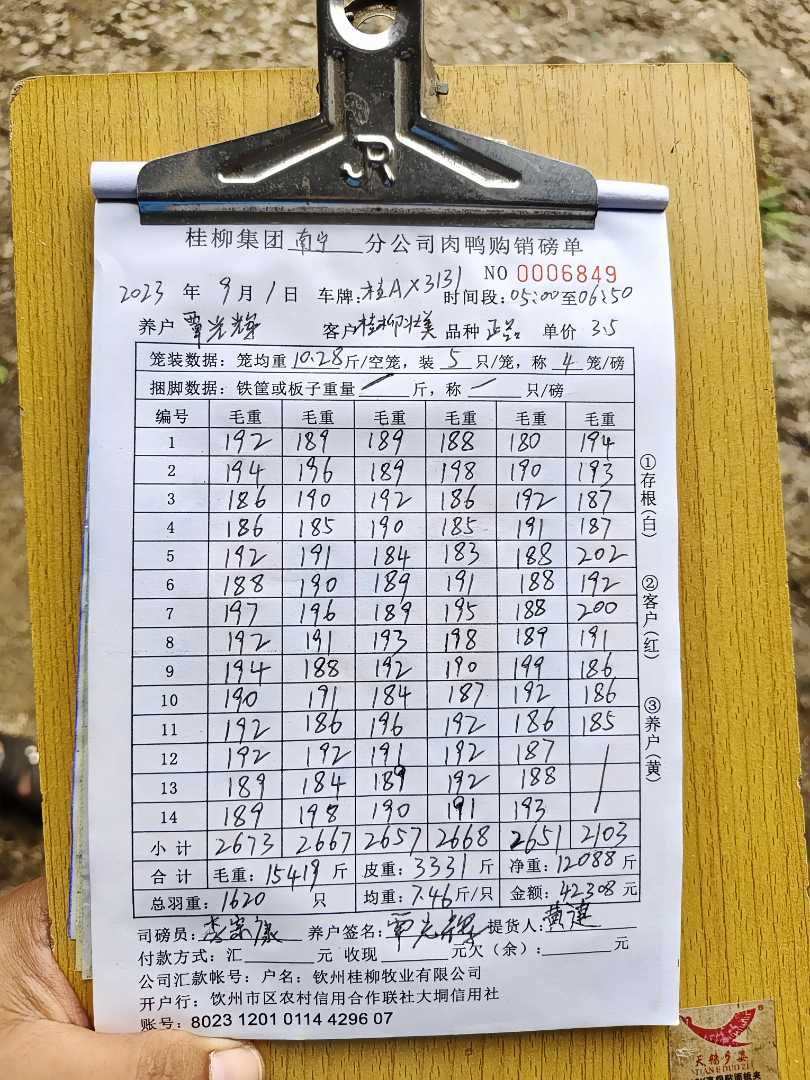 JR
桂柳集团 南宁 分公司肉鸭购销磅单
NO 0006849
2023 年 9 月 1 日 车牌:桂AX3131 时间段:05:00至06:50
养户 覃光辉 客户桂柳壮美 品种 单价 3.5
笼装数据:笼均重 10.28斤/空笼,装 5 只/笼,称 4 笼/磅
捆脚数据:铁筐或板子重量 / 斤,称 / 只/磅
编号 毛重 毛重 毛重 毛重 毛重 毛重
1 192 189 189 188 180 194
2 194 196 189 198 190 193
3 186 190 192 186 192 187
4 186 185 190 185 191 187
5 192 191 184 183 188 202
6 188 190 189 191 188 192
7 197 196 189 195 188 200
8 192 191 193 198 189 191
9 194 188 192 190 199 186
10 190 191 184 187 192 186
11 192 186 196 192 186 185
12 192 192 191 192 187 /
13 189 184 189 192 188
14 189 198 190 191 193
小计 2673 2667 2657 2668 2651 2103
合计 毛重:15419斤 皮重:3331斤 净重:12088斤
总羽重:1620 只 均重:7.46斤/只 金额:42308元
司磅员: 养户签名:覃光辉 提货人:黄建
付款方式:汇 元 收现 元欠(余): 元
公司汇款帐号:户名:钦州桂柳牧业有限公司
开户行:钦州市区农村信用合作联社大垌信用社
账号:8023 1201 0114 4296 07
①存根(白)
②客户(红)
③养户(黄)
天鹅多姿
TIAN E DUO ZI